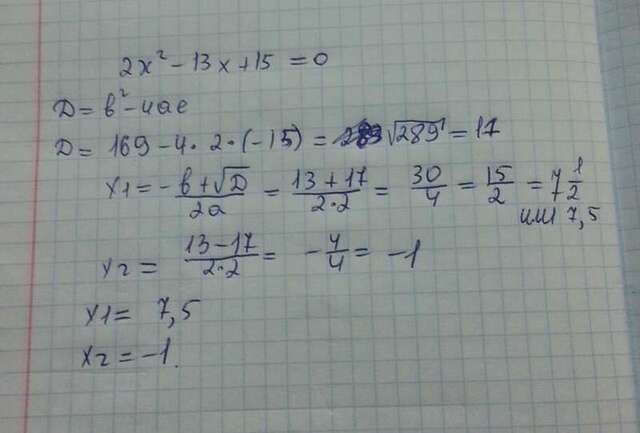 2x² - 13x + 15 = 0
D = b² - 4ac
D = 169 - 4 · 2 · (-15) = √289 = 17
x1 = -b + √D / 2a = 13 + 17 / 2·2 = 30/4 = 15/2 = 7 1/2
или 7,5
x2 = 13 - 17 / 2·2 = -4/4 = -1
x1 = 7,5
x2 = -1.